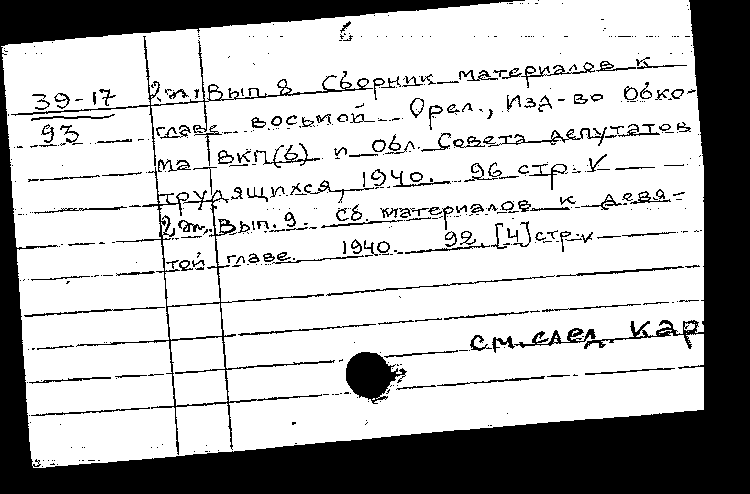 6
39-17
93
2 эк. Вып. 8. Сборник материалов к
главе восьмой Орел., Изд-во Обко-
ма ВКП(б) и Обл. Совета депутатов
трудящихся, 1940. 96 стр. V
2 эк. Вып. 9. Сб. материалов к девя-
той главе. 1940. 92. [4] стр. V
см. след. кар